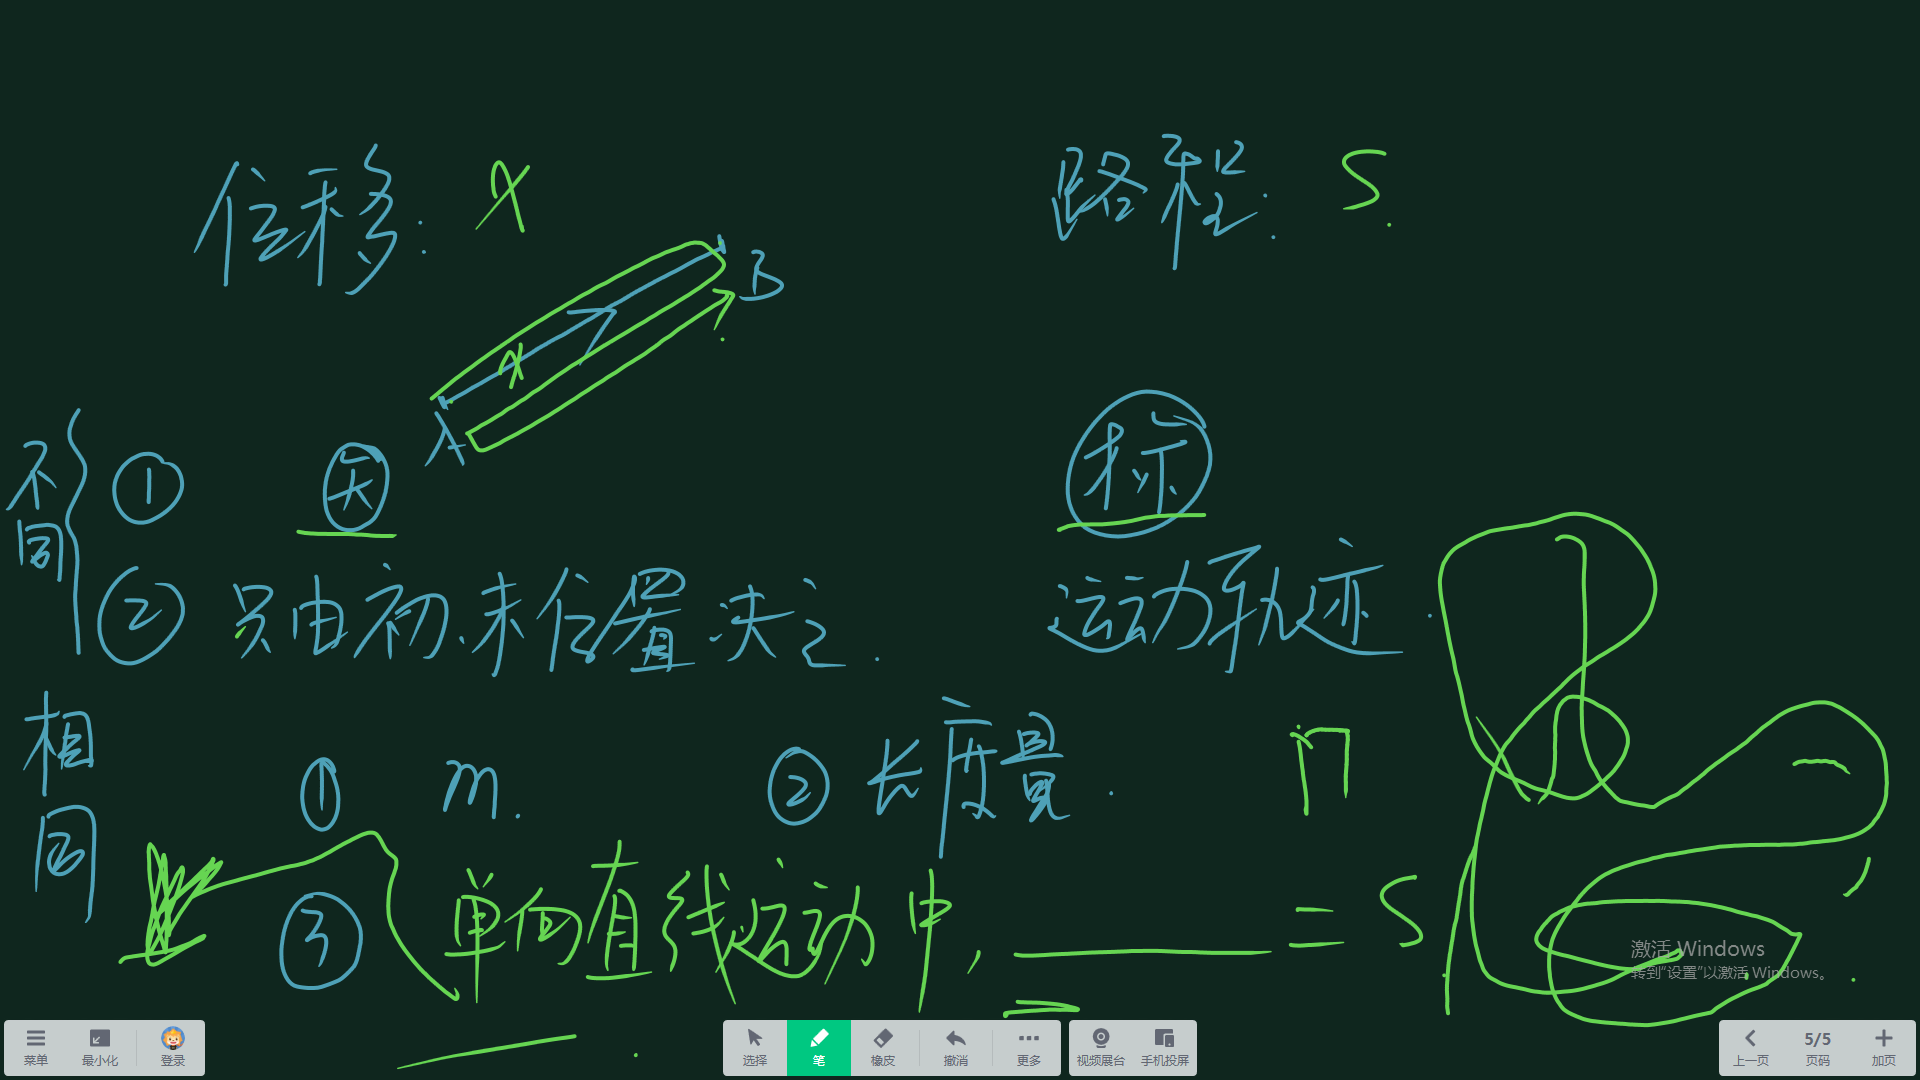 位移: x
路程: S.
B
x
A
不同
① 因
标
② 只由初、末位置.决定.
运动轨迹.
相同
① m. ② 长度量.
③ 单向直线运动中, = S
激活 Windows
转到“设置”以激活 Windows。
菜单 最小化 登录 选择 笔 橡皮 撤消 更多 视频展台 手机投屏 上一页 5/5 页码 加页